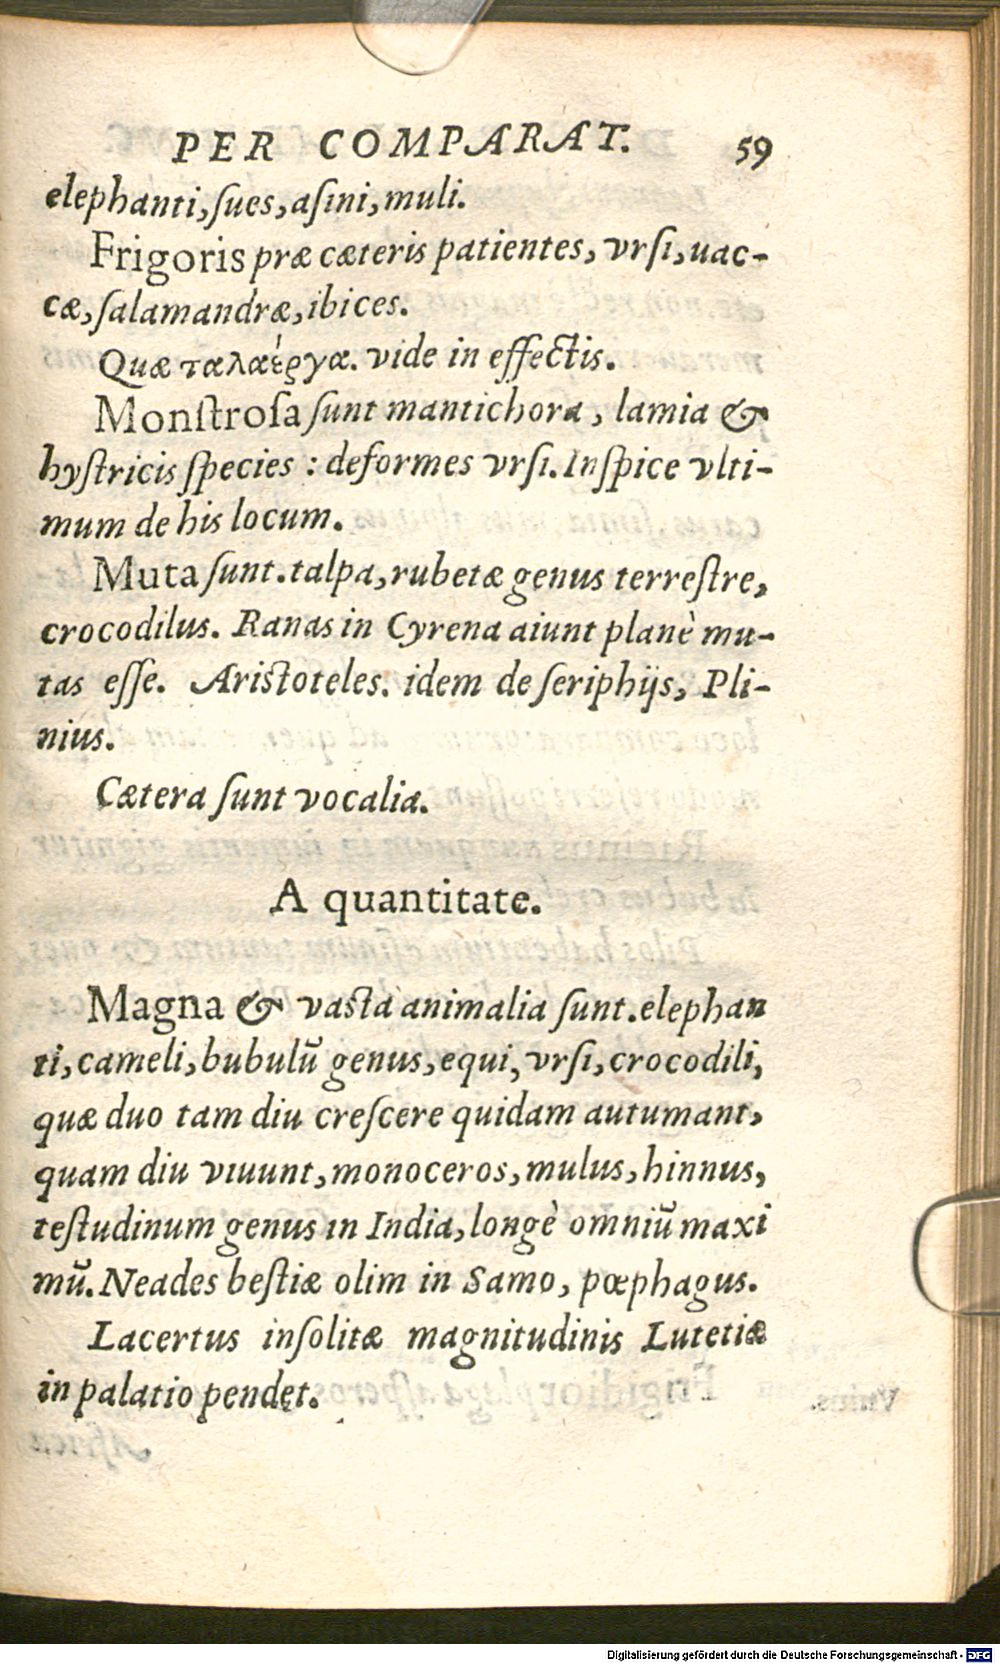 PER COMPARAT. 59
elephanti, ſues, aſini, muli.
Frigoris præ cæteris patientes, vrſi, uac-
cæ, ſalamandræ, ibices.
Quæ ταλαέργα. vide in effectis.
Monſtroſa ſunt mantichora, lamia &
hyſtricis ſpecies : deformes vrſi. Inſpice vlti-
mum de his locum.
Muta ſunt. talpa, rubetæ genus terreſtre,
crocodilus. Ranas in Cyrena aiunt planè mu-
tas eſſe. Ariſtoteles. idem de ſeriphijs, Pli-
nius.
Cætera ſunt vocalia.
A quantitate.
Magna & vaſta animalia ſunt. elephan
ti, cameli, bubulū genus, equi, vrſi, crocodili,
quæ duo tam diu creſcere quidam autumant,
quam diu viuunt, monoceros, mulus, hinnus,
teſtudinum genus in India, longè omniū maxi
mū. Neades beſtiæ olim in Samo, pœphagus.
Lacertus inſolitæ magnitudinis Lutetiæ
in palatio pendet.
Digitalisierung gefördert durch die Deutsche Forschungsgemeinschaft - DFG